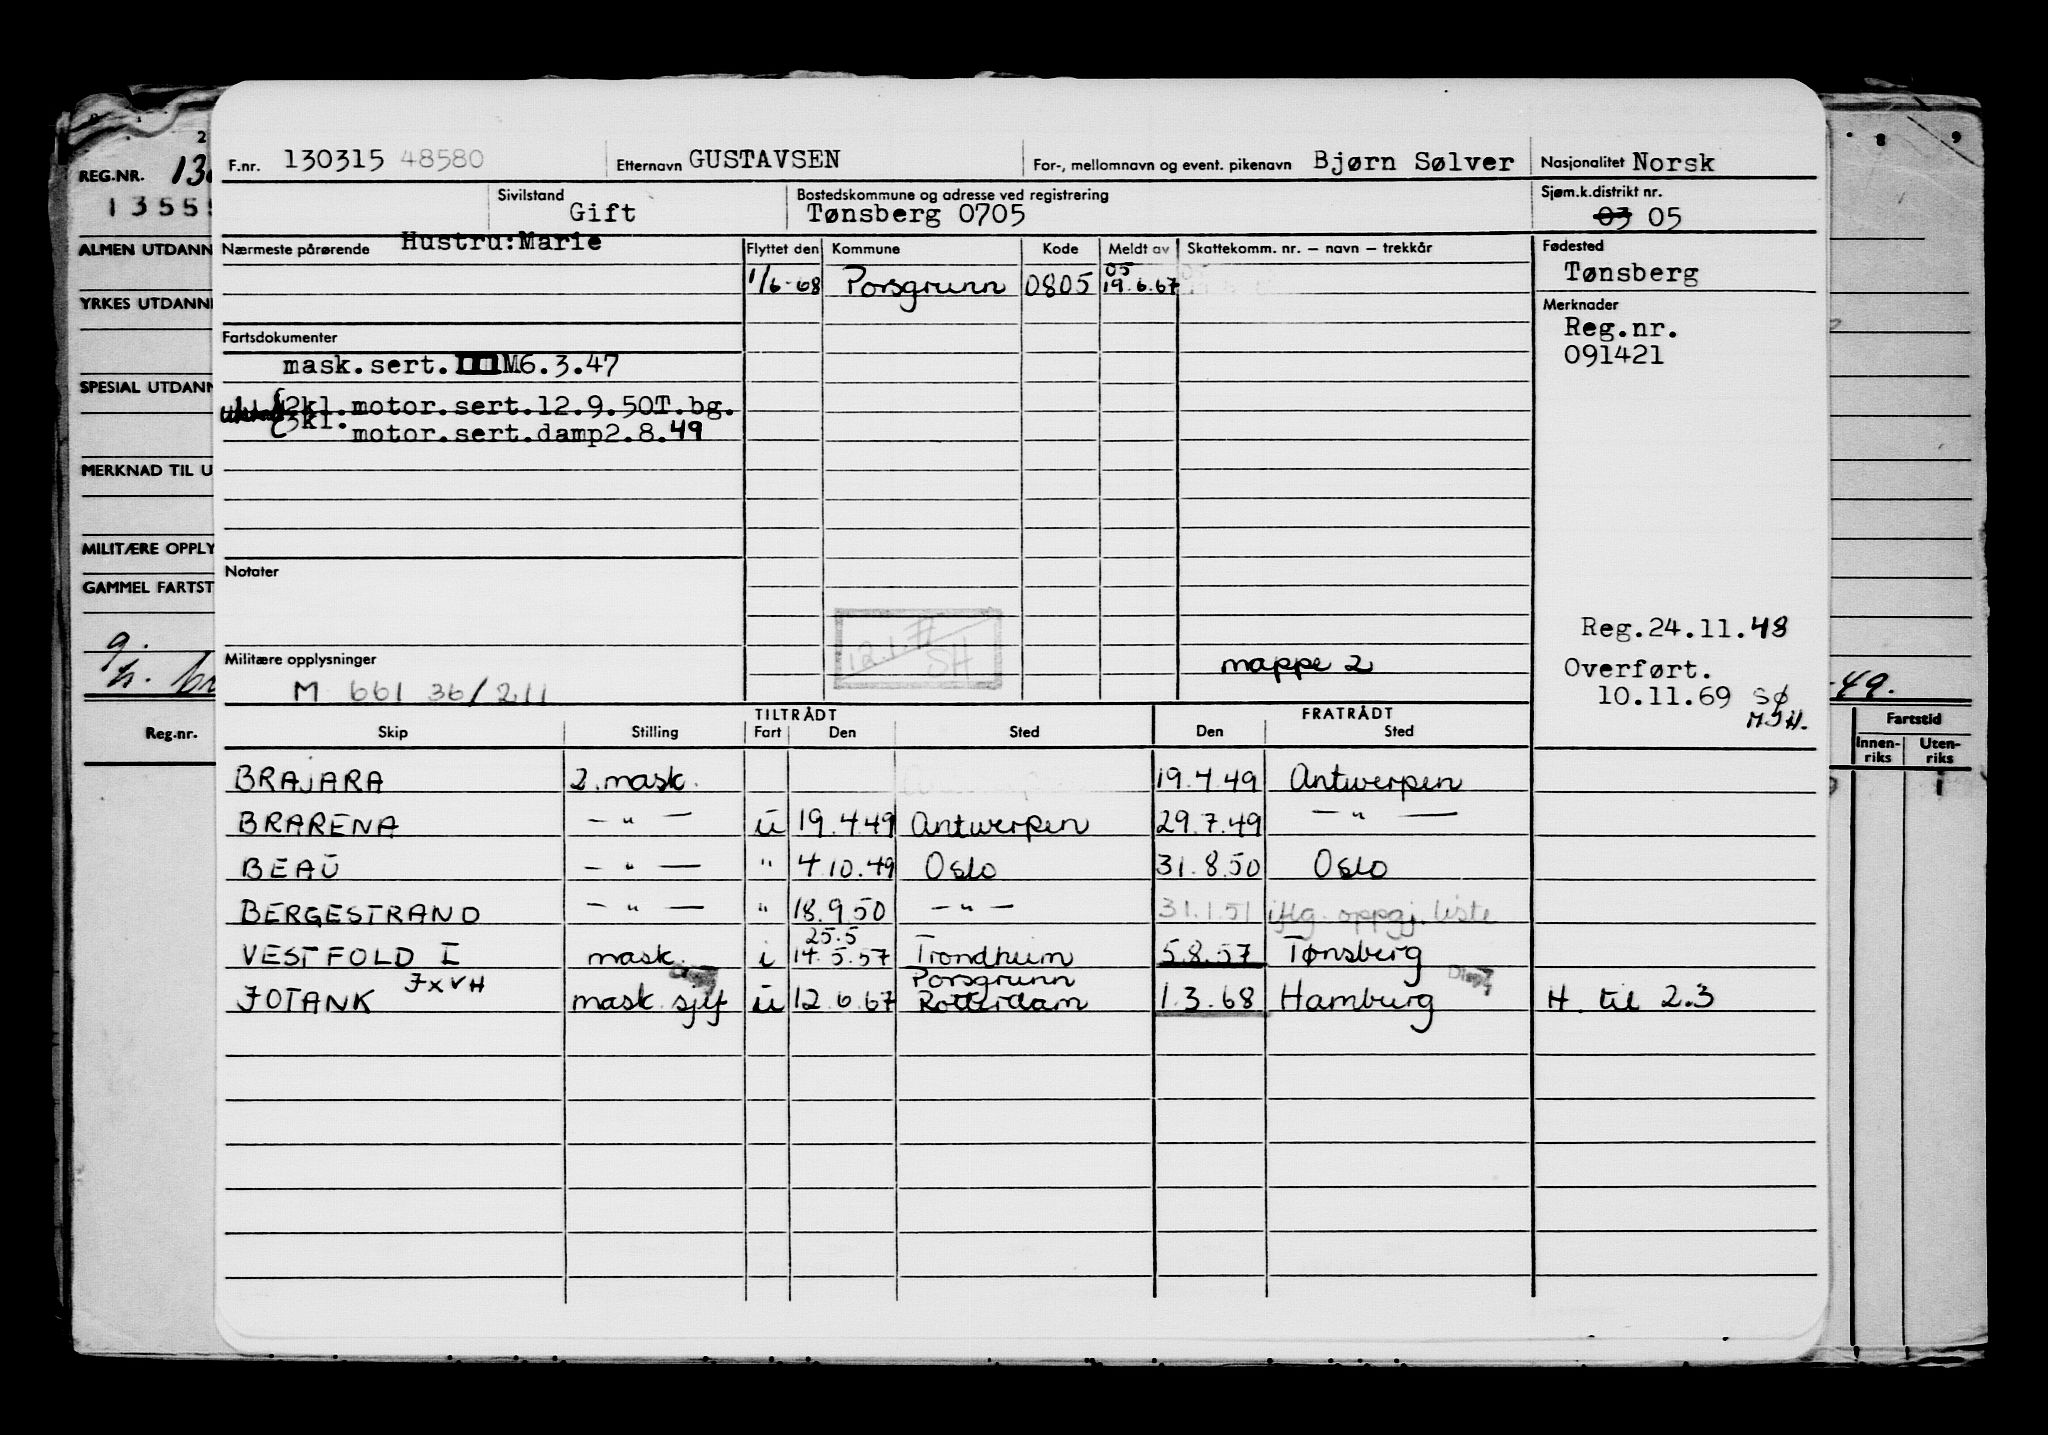 F.nr. 130315 48580 Etternavn GUSTAVSEN For-, mellomnavn og event. pikenavn Bjørn Sølver Nasjonalitet Norsk
Sivilstand Gift Bostedskommune og adresse ved registrering Tønsberg 0705 Sjøm.k.distrikt nr. 03 05
Nærmeste pårørende Hustru:Marie Flyttet den Kommune Kode Meldt av Skattekomm. nr. – navn – trekkår Fødested
Tønsberg
1/6-68 Porsgrunn 0805 05 19.6.67
Merknader
Reg.nr.
091421
Fartsdokumenter
mask.sert. M6.3.47
2kl.motor.sert.12.9.50T.bg.
3kl. motor.sert.damp2.8.49
Notater
12.1.77
SH
Reg.24.11.48
Militære opplysninger
M 661 36/211
mappe 2
Overført.
10.11.69 SØ
TILTRÅDT FRATRÅDT
Skip Stilling Fart Den Sted Den Sted
BRAJARA 2.mask. 19.4.49 Antwerpen
BRARENA — " — u 19.4.49 Antwerpen 29.7.49 — " —
BEAU — " — " 4.10.49 Oslo 31.8.50 Oslo
BERGESTRAND — " — " 18.9.50 — " — 31.1.51 iflg. oppgj. liste
25.5
VESTFOLD I mask. i 14.5.57 Trondheim 5.8.57 Tønsberg
JXVH Porsgrunn
JOTANK mask. sjef u 12.6.67 Rotterdam 1.3.68 Hamburg H. til 2.3
REG.NR.
ALMEN UTDANN
YRKES UTDANN
SPESIAL UTDANN
MERKNAD TIL U
MILITÆRE OPPLY
GAMMEL FARTST
Reg.nr.
8 9
49.
Fartstid
Innen-riks Uten-riks